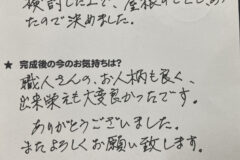 検討した上で、屋根のことも、あっ
たので決めました。
★ 完成後の今のお気持ちは？
職人さんの、お人柄も良く、
出来栄えも大変良かったです。
ありがとうございました。
またよろしくお願い致します。